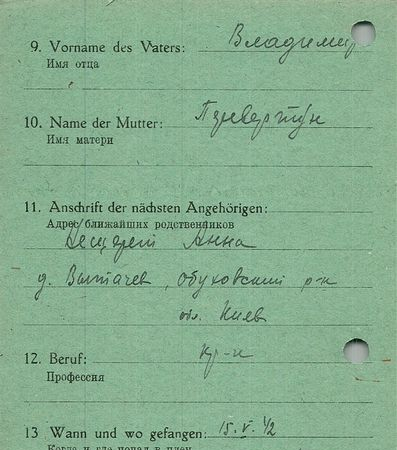 9. Vorname des Vaters: Владимир
Имя отца
10. Name der Mutter:
Имя матери
11. Anschrift der nächsten Angehörigen:
Адрес ближайших родственников
Анна
д. Вытачев, Обуховский р-н
обл. Киев
12. Beruf: кр-н
Профессия
13 Wann und wo gefangen: 15.V.42
Когда и где попал в плен